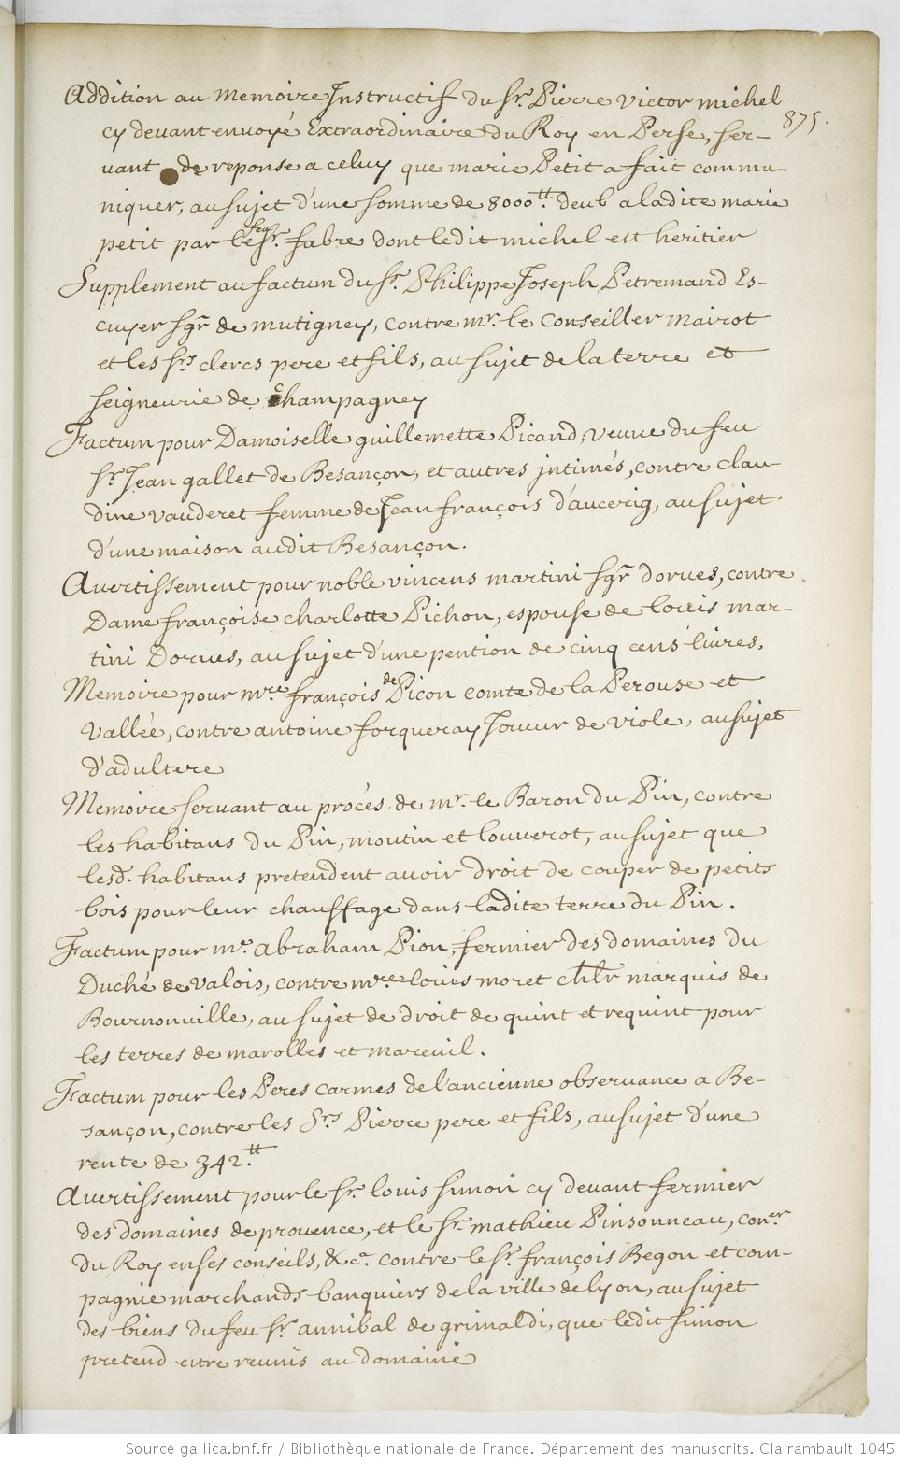 Addition au Memoire Instructif du Sr. Pierre Victor michel
875.
cy devant envoyé Extraordinaire du Roy en Perse, ser-
vant de reponse a celuy que marie Petit a fait commu-
niquer, au sujet d'une somme de 8000tt. deub a ladite marie
petit par le feu Sr. fabre dont ledit michel est heritier
Supplement au factum du Sr. Philippe Joseph Petremand Es-
cuyer Sgr de mutigney, contre mr. le Conseiller mairot
et les Srs clercs pere et fils, au sujet de la terre et
seigneurie de champagney
Factum pour Damoiselle guillemette Picand, veuve du feu
Sr. Jean gallet de Besançon, et autres intimés, contre clau-
dine vauderet femme de Jean françois d'aucerig, au sujet
d'une maison audit Besançon.
Avertissement pour noble vincens martini Sgr dorves, contre
Dame françoise charlotte Pichon, espouse de louis mar-
tini Dorves, au sujet d'une pention de cinq cens livres,
Memoire pour mre françois de Picon comte de la Perouse et
Vallée, contre antoine forqueray Joueur de viole, au sujet
d'adultere
Memoire servant au procés de mr. le Baron du Pin, contre
les habitans du Pin, moutin et louverot, au sujet que
lesd. habitans pretendent avoir droit de couper de petits
bois pour leur chauffage dans ladite terre du Pin.
Factum pour me. abraham Pion, fermier des domaines du
Duché de Valois, contre mre louis moret chlr marquis de
Bournonville, au sujet de droit de quint et requint pour
les terres de marolles et mareuil.
Factum pour les Peres carmes de l'ancienne observance a Be-
sançon, contre les Srs Pierre pere et fils, au sujet d'une
rente de 342.tt
Avertissement pour le Sr. louis simon cy devant fermier
des domaines de provence, et le Sr. mathieu Pinsonneau, coner
du Roy en ses conseils, &ca. contre le Sr. françois Begon et com-
pagnie marchands banquiers de la ville de lyon, au sujet
des biens du feu Sr. annibal de grimaldi, que ledit simon
pretend etre reunis au domaine
Source gallica.bnf.fr / Bibliothèque nationale de France. Département des manuscrits. Clairambault 1045